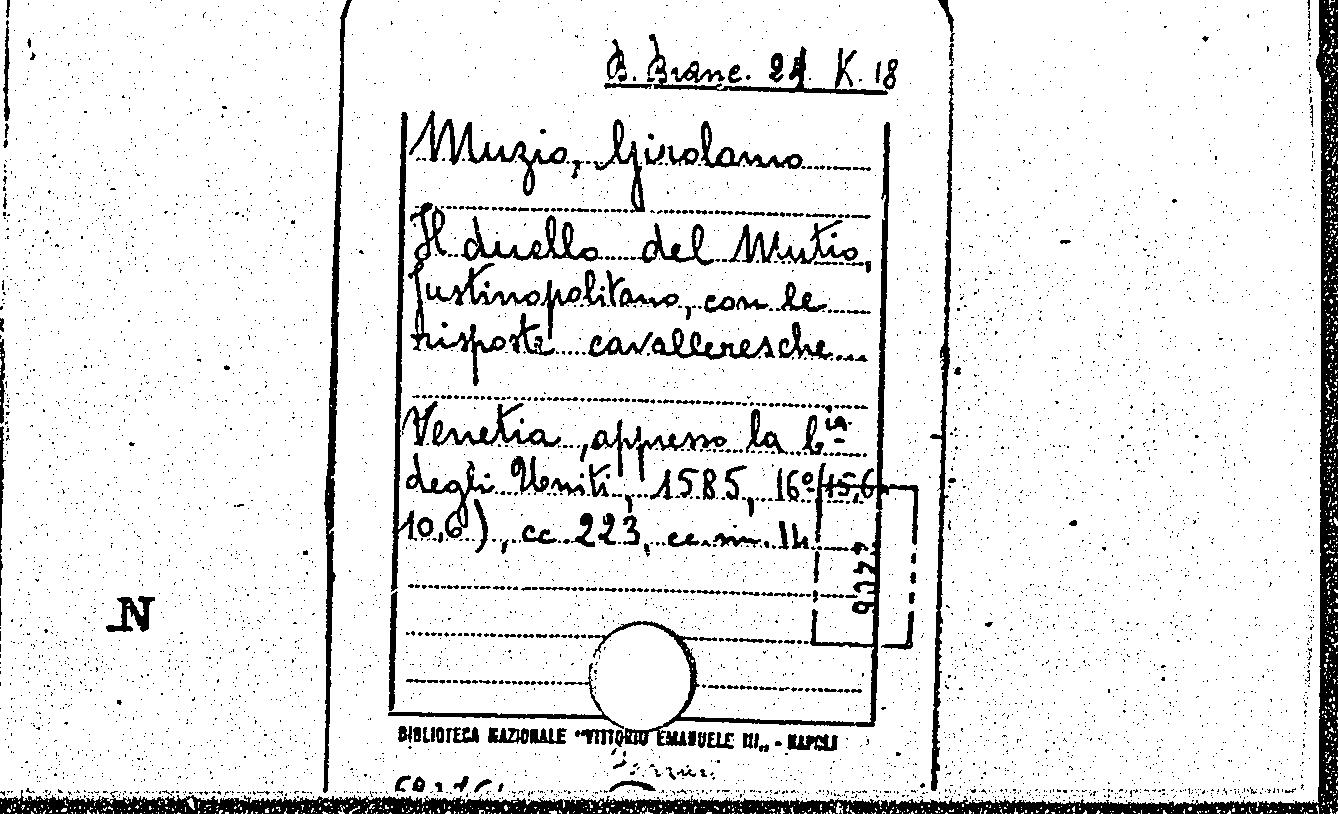 B. Branc. 24. K. 18
Muzio, Girolamo
Il duello del Mutio,
Justinopolitano, con le
risposte cavalleresche...
Venetia, appresso la C.ia
degli Uniti, 1585, 16º(15,6×
10,6), cc 223, cc.nn. 14
N
BIBLIOTECA NAZIONALE "VITTORIO EMANUELE III„ - NAPOLI